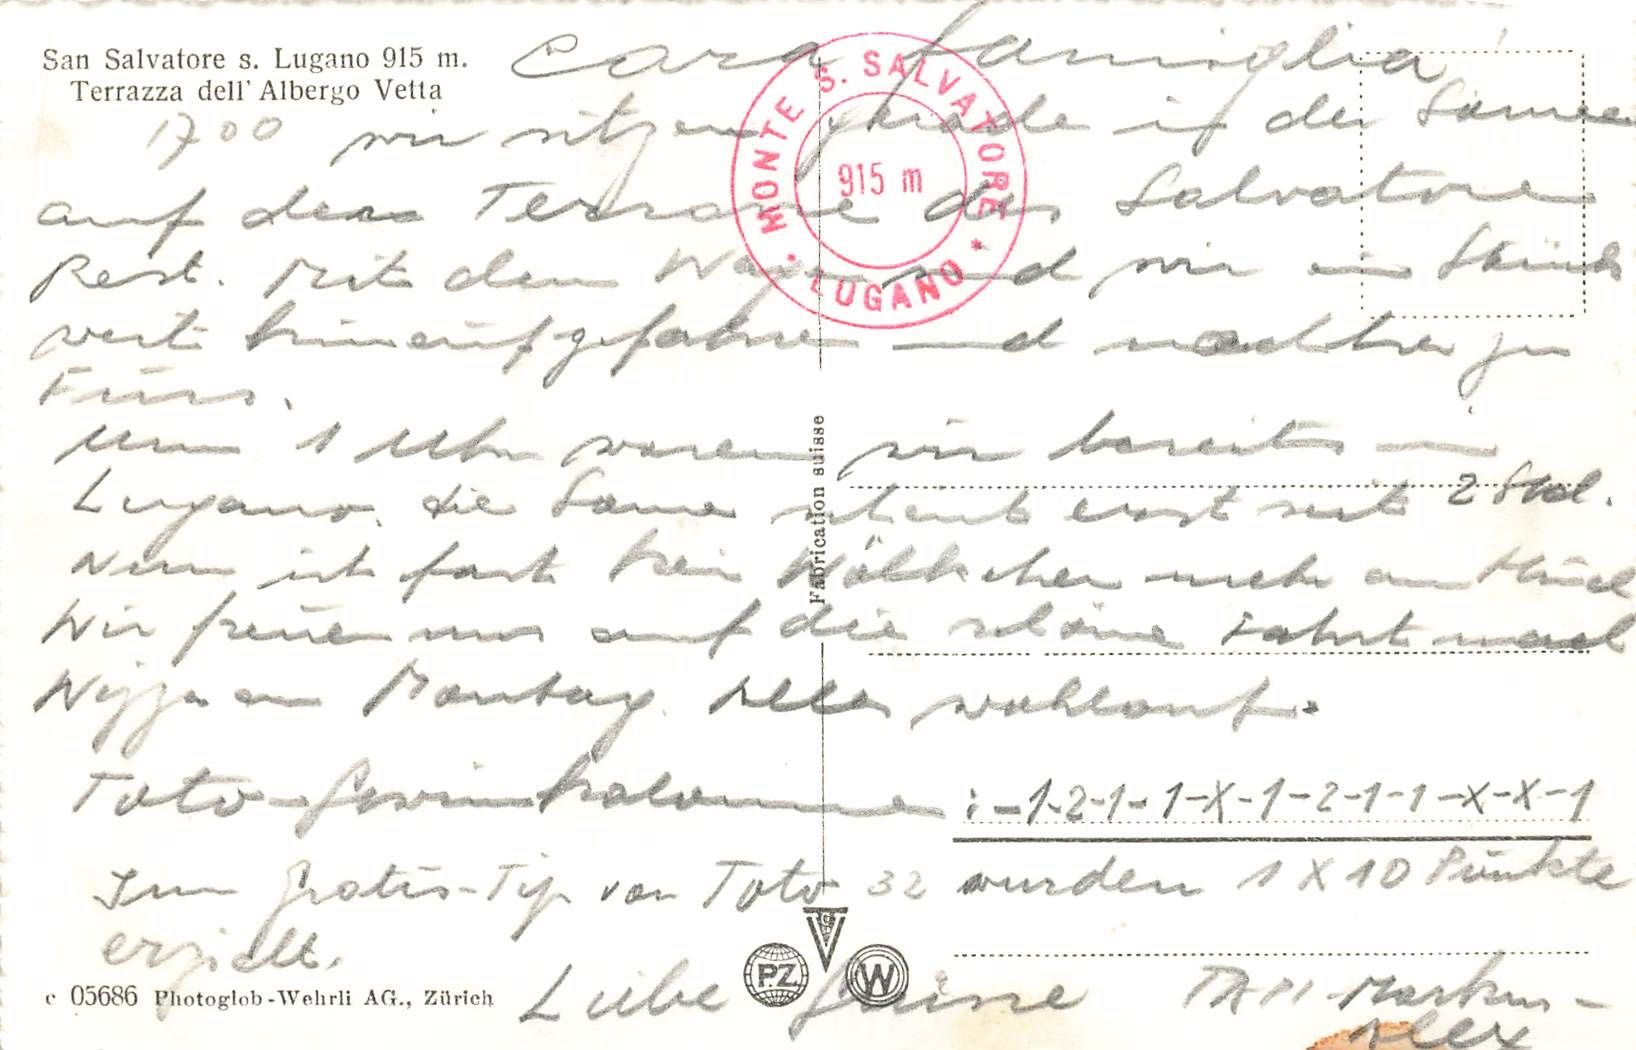 San Salvatore s. Lugano 915 m.
Terrazza dell' Albergo Vetta
Cara famiglia!
MONTE S. SALVATORE
915 m
• LUGANO •
1700 wir sitzen gerade in der Sonne
auf der Terrasse des Salvatore
Rest. Mit dem Wagen sind wir ein Stück
weit hinaufgefahren und nachher zu
Fuss.
Um 1 Uhr waren wir bereits in
Lugano. Die Sonne scheint erst seit 2 Std.
Nun ist fast kein Wölkchen mehr am
Wir freuen uns auf die schöne Fahrt nach
Nizza am Montag. Alles wohlauf.
Toto-Gewinnkolonne : -1-2-1-1-X-1-2-1-1-X-X-1
Im Gratis-Tip von Toto 32 wurden 1 X 10 Punkte
erzielt.
Liebe Grüsse
Markus-
Alex
Fabrication suisse
c 05686 Photoglob-Wehrli AG., Zürich
P.Z
W